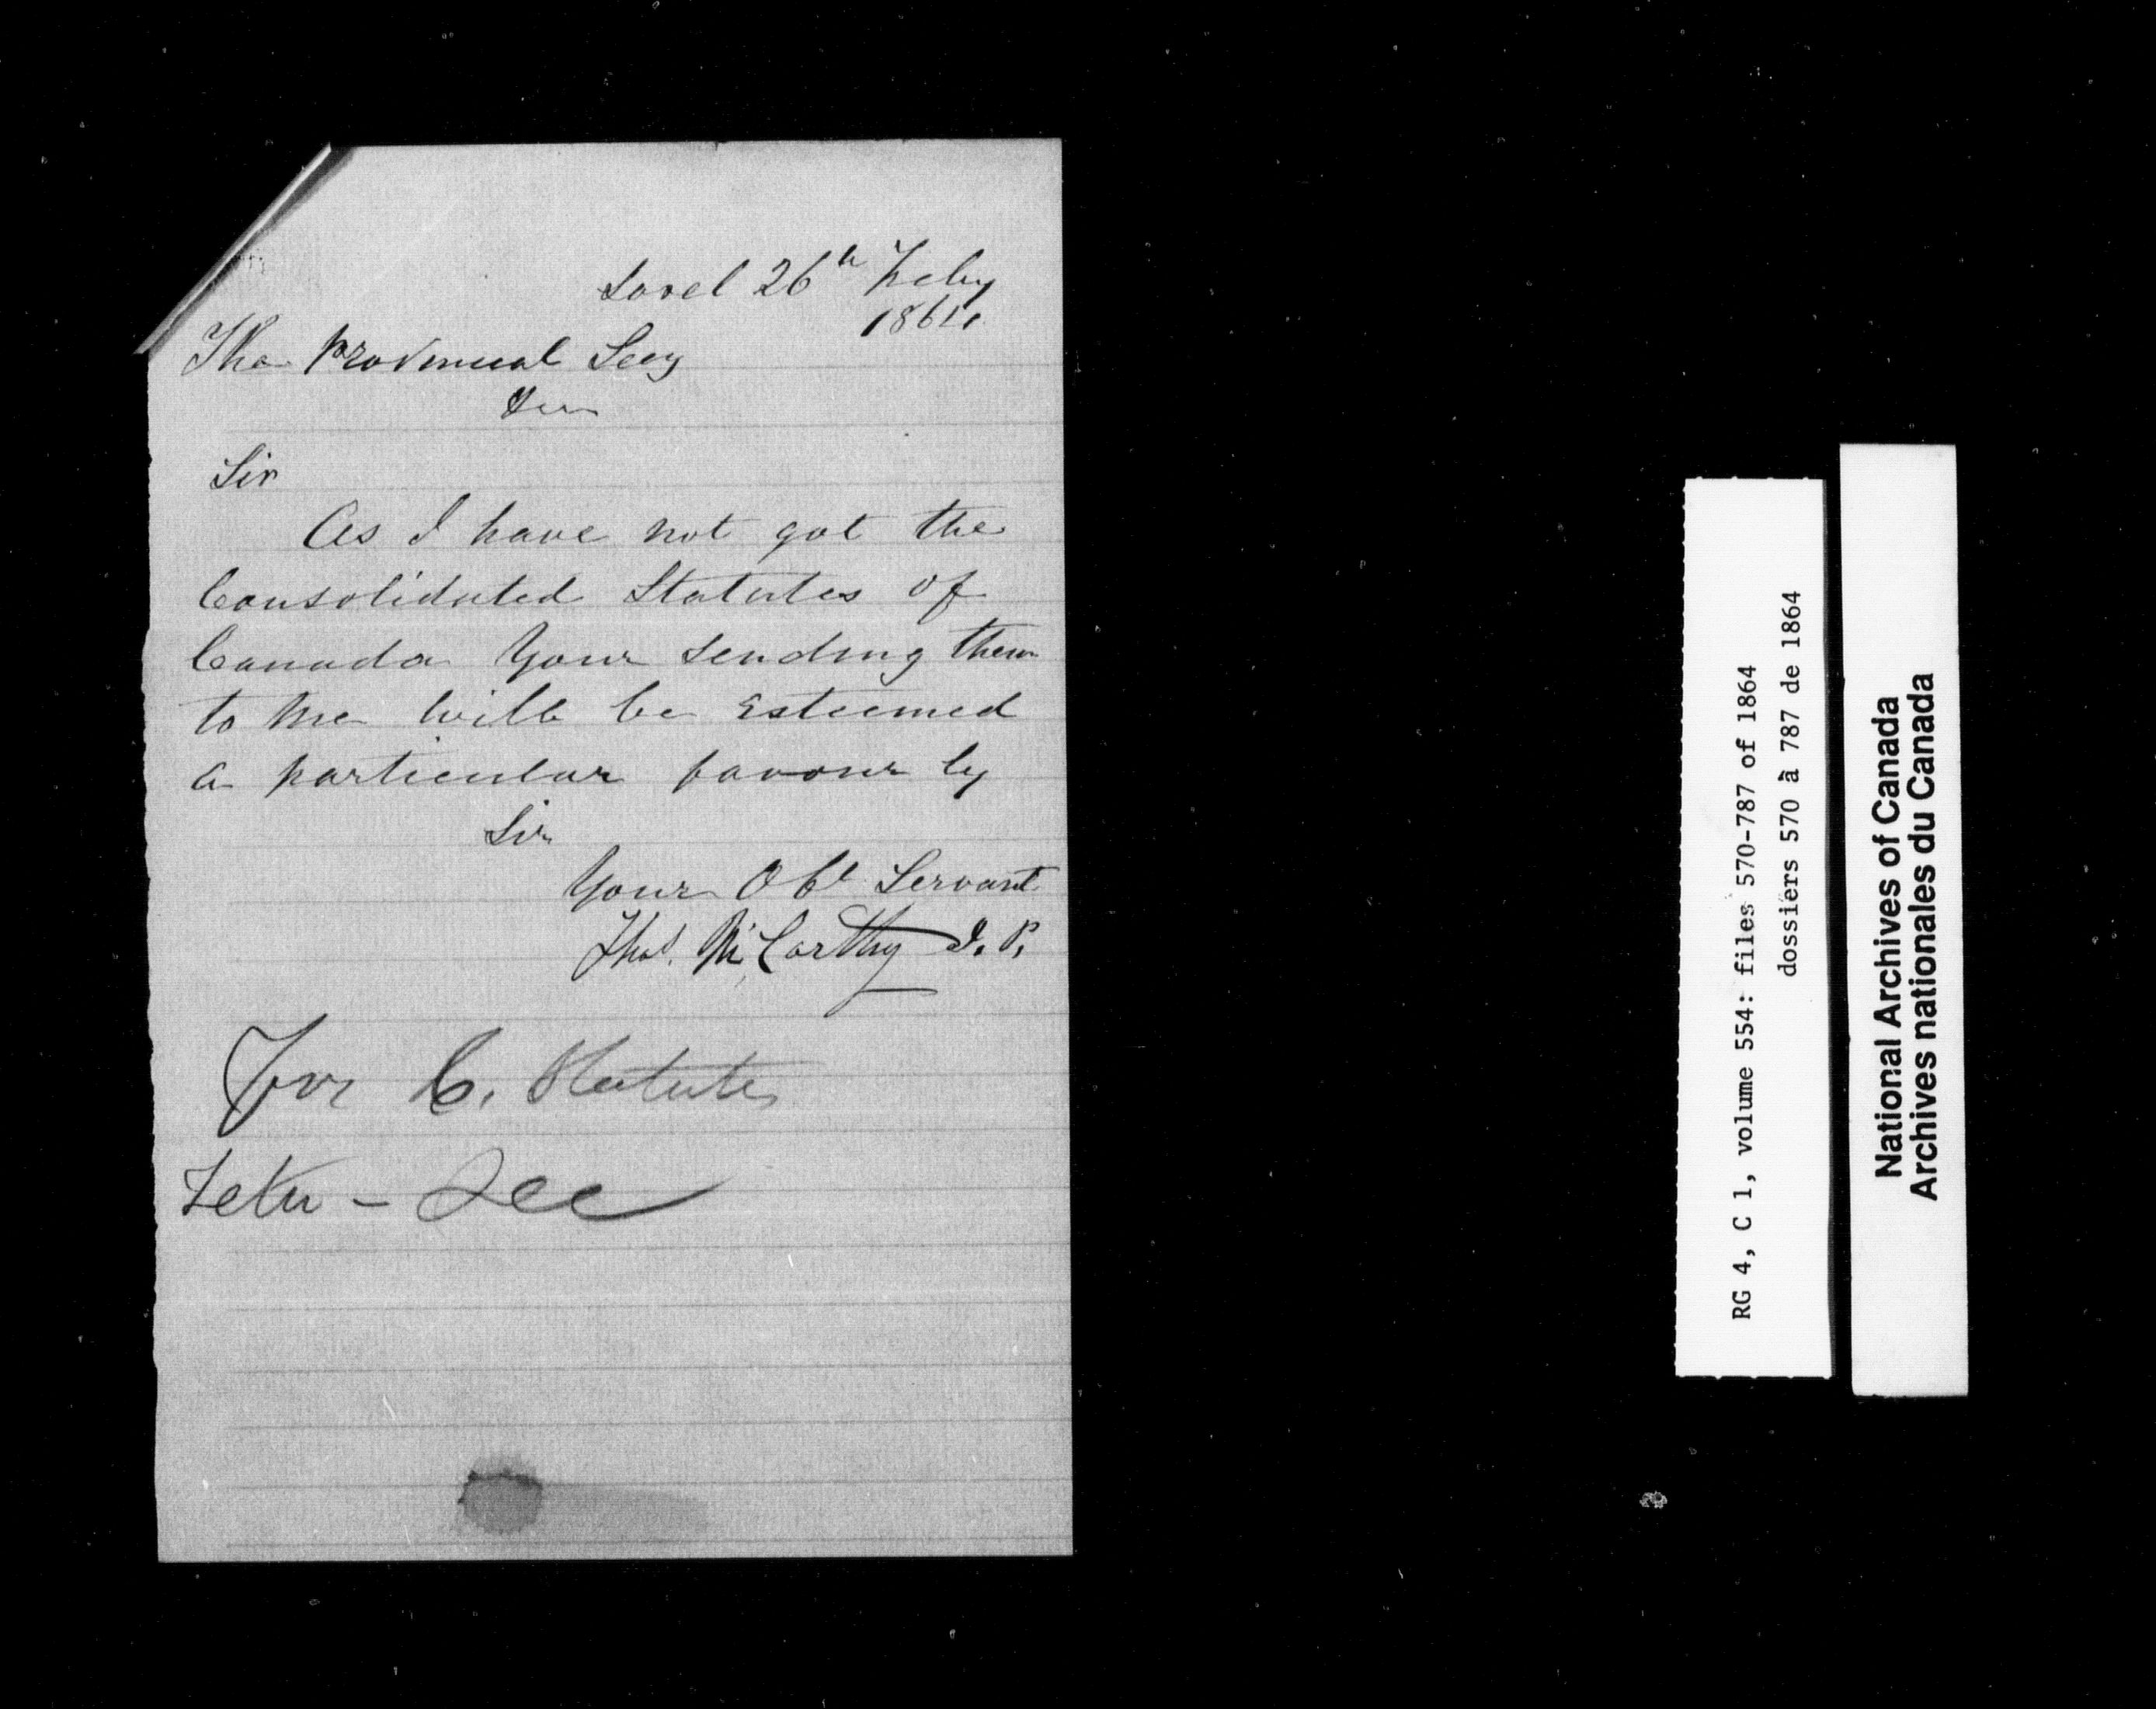 Sorel 26th Feby
1864
The Provincial Secy
Sir
As I have not got the
Consolidated Statutes of
Canada Your sending them
to me will be Esteemed
a particular favour by
Sir
Your Obt Servant
Thos. McCarthy J. P.
For C. Statutes
RG 4, C 1, volume 554: files 570-787 of 1864
dossiers 570 à 787 de 1864
National Archives of Canada
Archives nationales du Canada